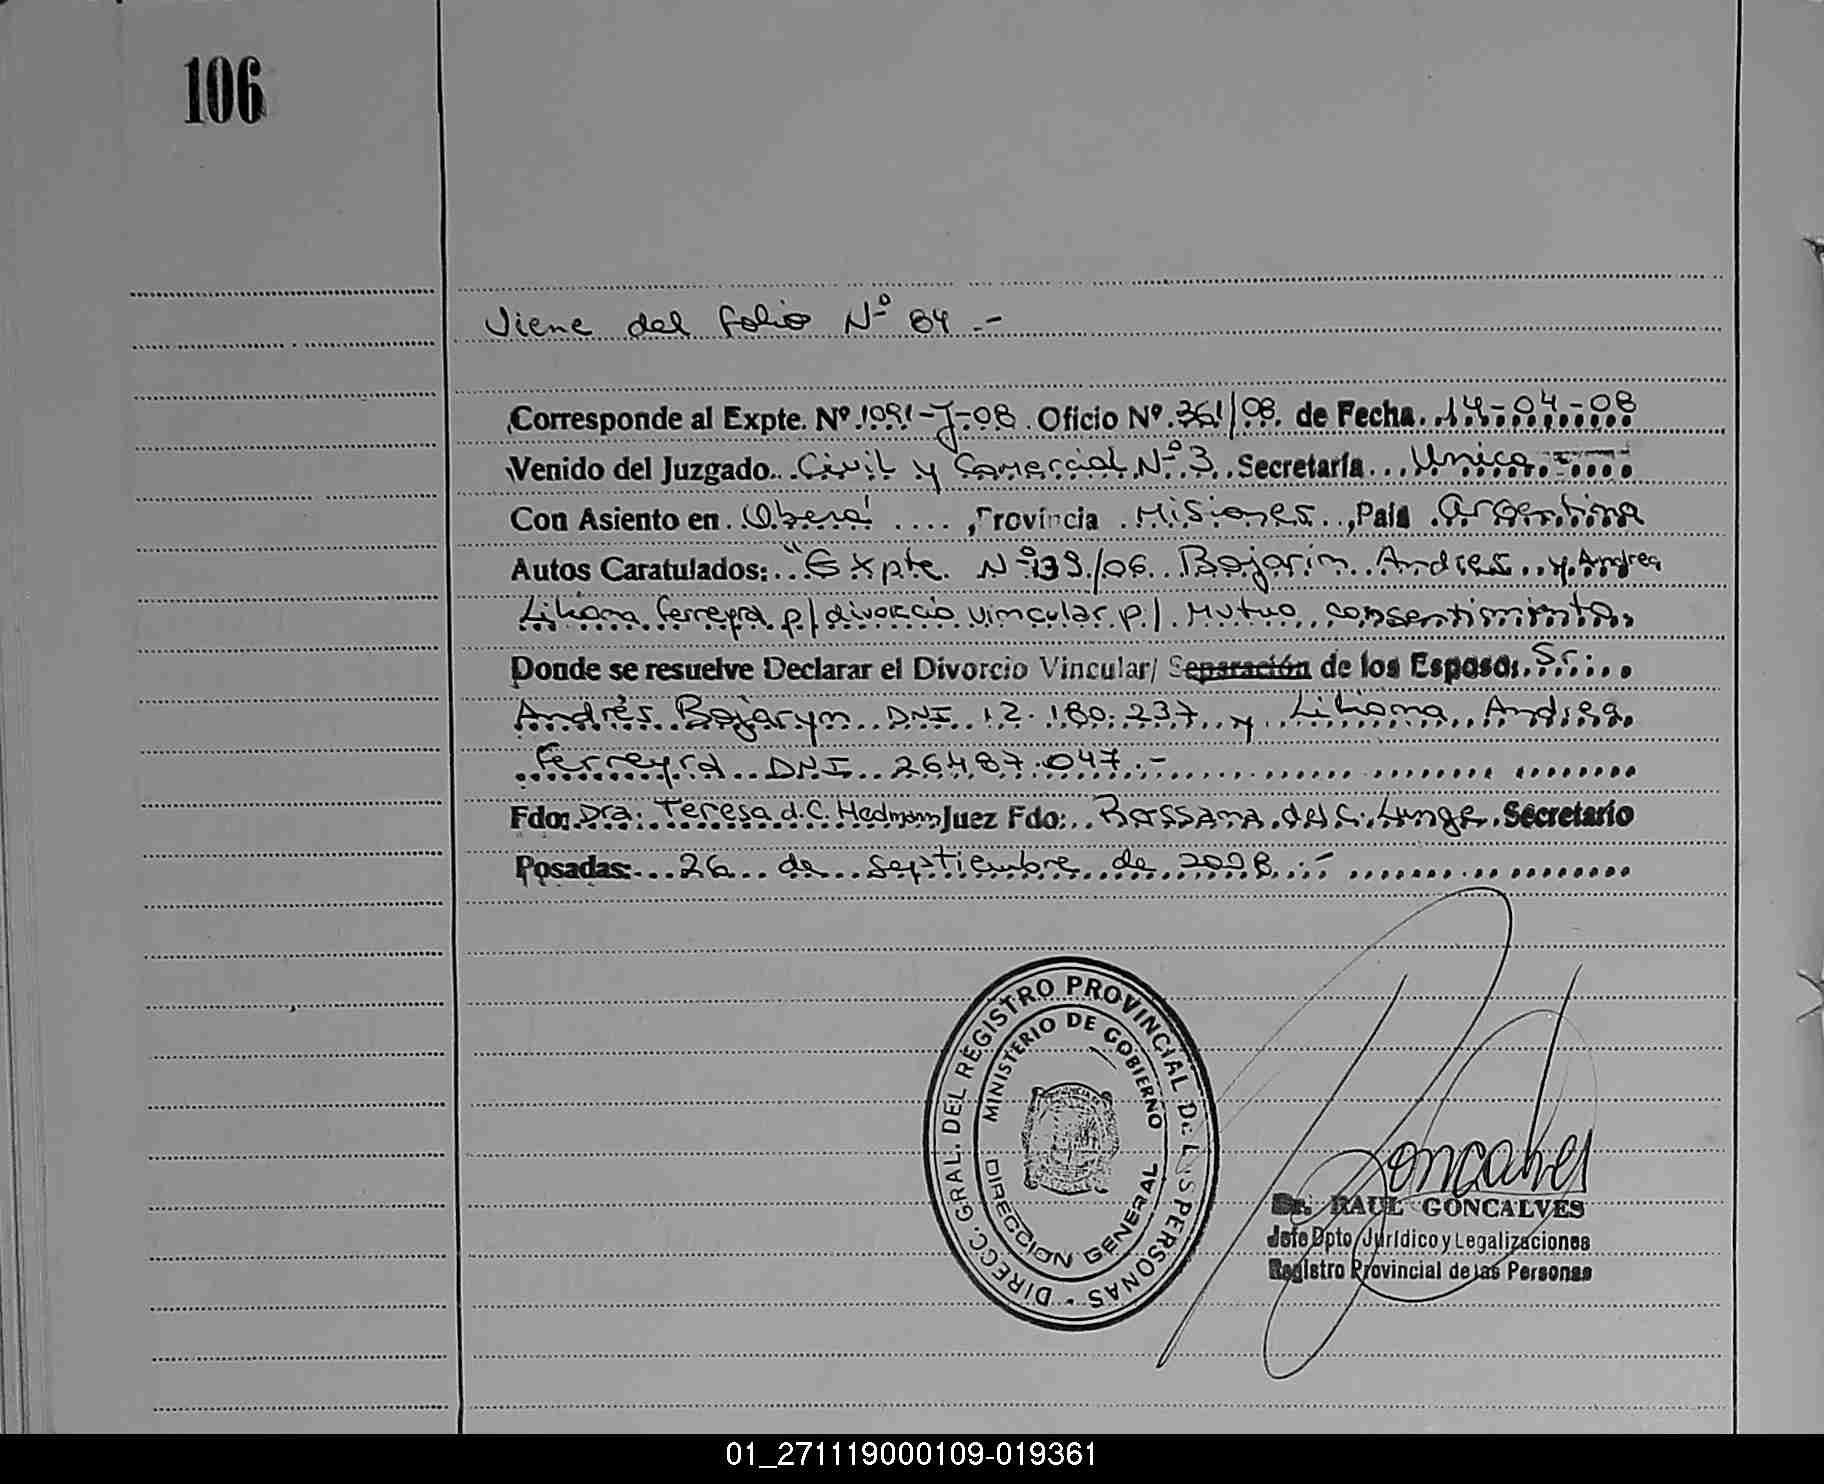 106
Viene del folio Nº 84.-
Corresponde al Expte. Nº 1091-J-08 Oficio Nº 361/08 de Fecha 14-04-08
Venido del Juzgado Civil y Comercial Nº 3 Secretaría Unica
Con Asiento en Oberá, Provincia Misiones, País Argentina
Autos Caratulados: "Expte. Nº 139/06 Bojarin Andres y Andrea
Liliana Ferreyra p/ divorcio vincular p/ Mutuo consentimiento
Donde se resuelve Declarar el Divorcio Vincular/ Separación de los Esposos Sr:
Andrés Bojaryn DNI 12.180.237 y Liliana Andrea
Ferreyra DNI 26487.047.-
Fdo: Dra: Teresa d.C. Hedmann Juez Fdo: Rossana del C. Secretario
Posadas: 26 de septiembre de 2008.-
DIRECC. GRAL. DEL REGISTRO PROVINCIAL DE LAS PERSONAS -
MINISTERIO DE GOBIERNO
DIRECCION GENERAL
Goncalves
Dr. RAUL GONCALVES
Jefe Dpto Jurídico y Legalizaciones
Registro Provincial de las Personas
01_271119000109-019361